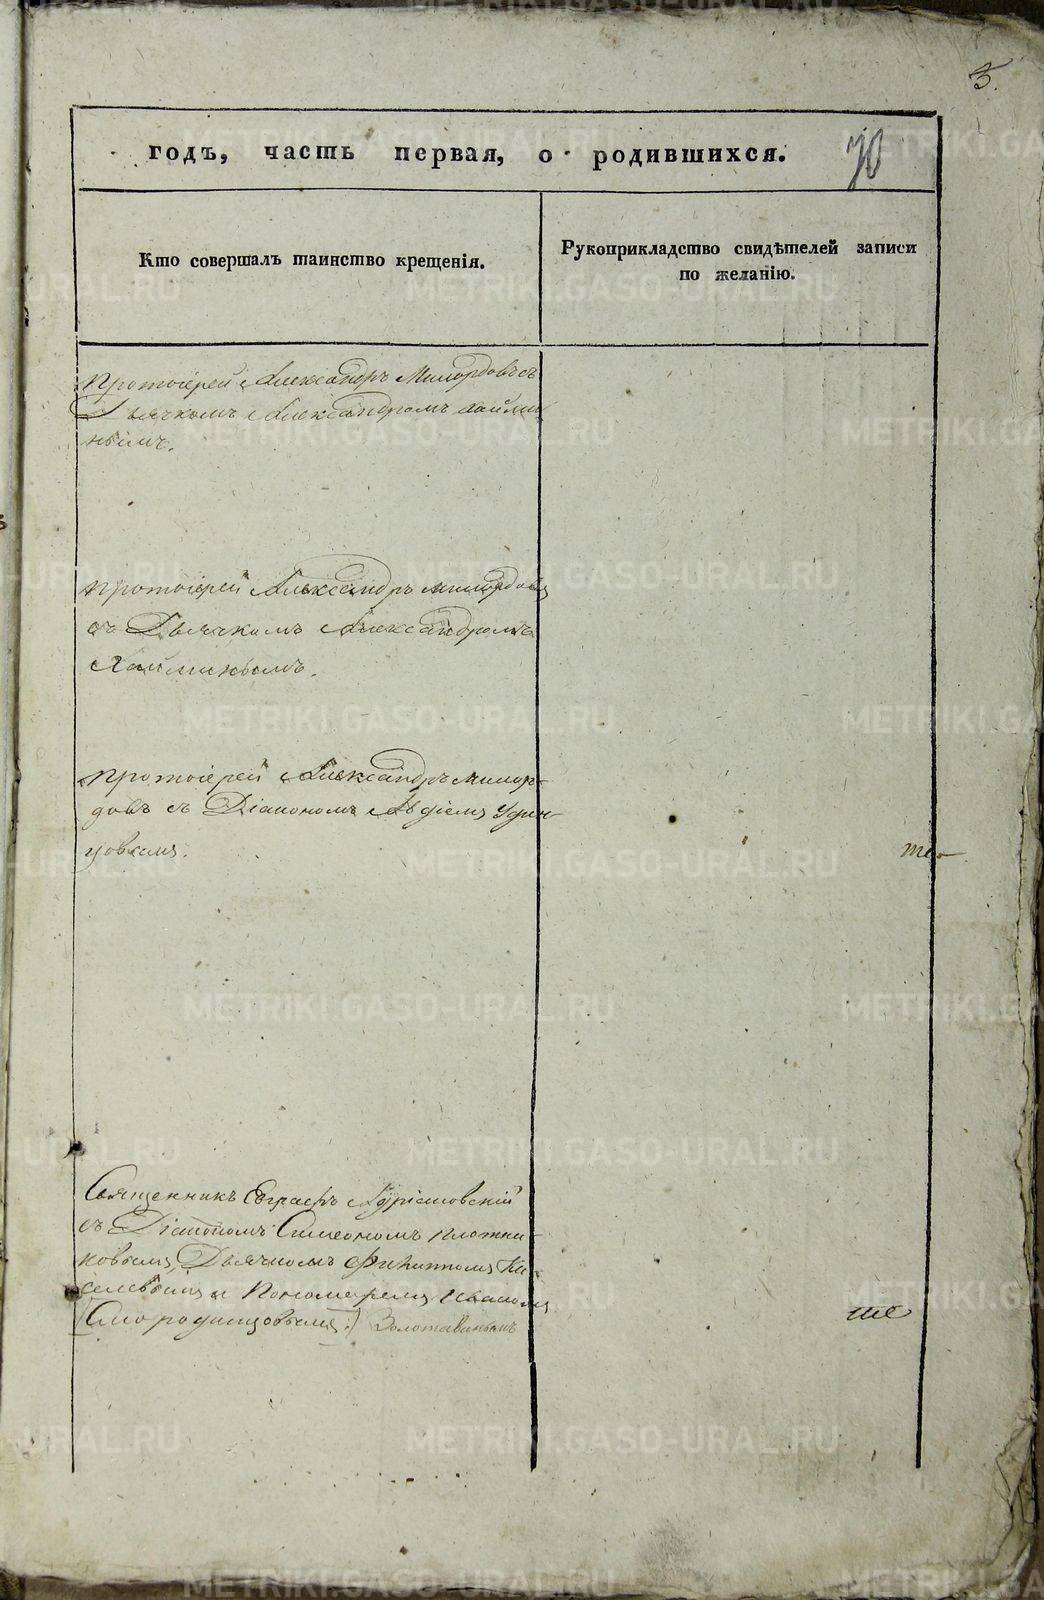 5.
годъ, часть первая, о родившихся. 70
Кто совершалъ таинство крещенія.
Рукоприкладство свидѣтелей записи
по желанію.
Протоіерей Александръ Милордовъ съ
Дьячкомъ Александромъ
нымъ.
Протоіерей Александръ Милордовъ
съ Дьячкомъ Александромъ
Протоіерей Александръ Милор-
довъ съ Діакономъ Авдіемъ Удин-
цовымъ.
Священникъ Евграфъ
съ Діакономъ Симеономъ Плотни-
ковымъ, Дьячкомъ Филиппомъ Ки-
селевымъ и Пономаремъ Иваномъ
(Смородинцовымъ.) Золотавинымъ
METRIKI.GASO-URAL.RU